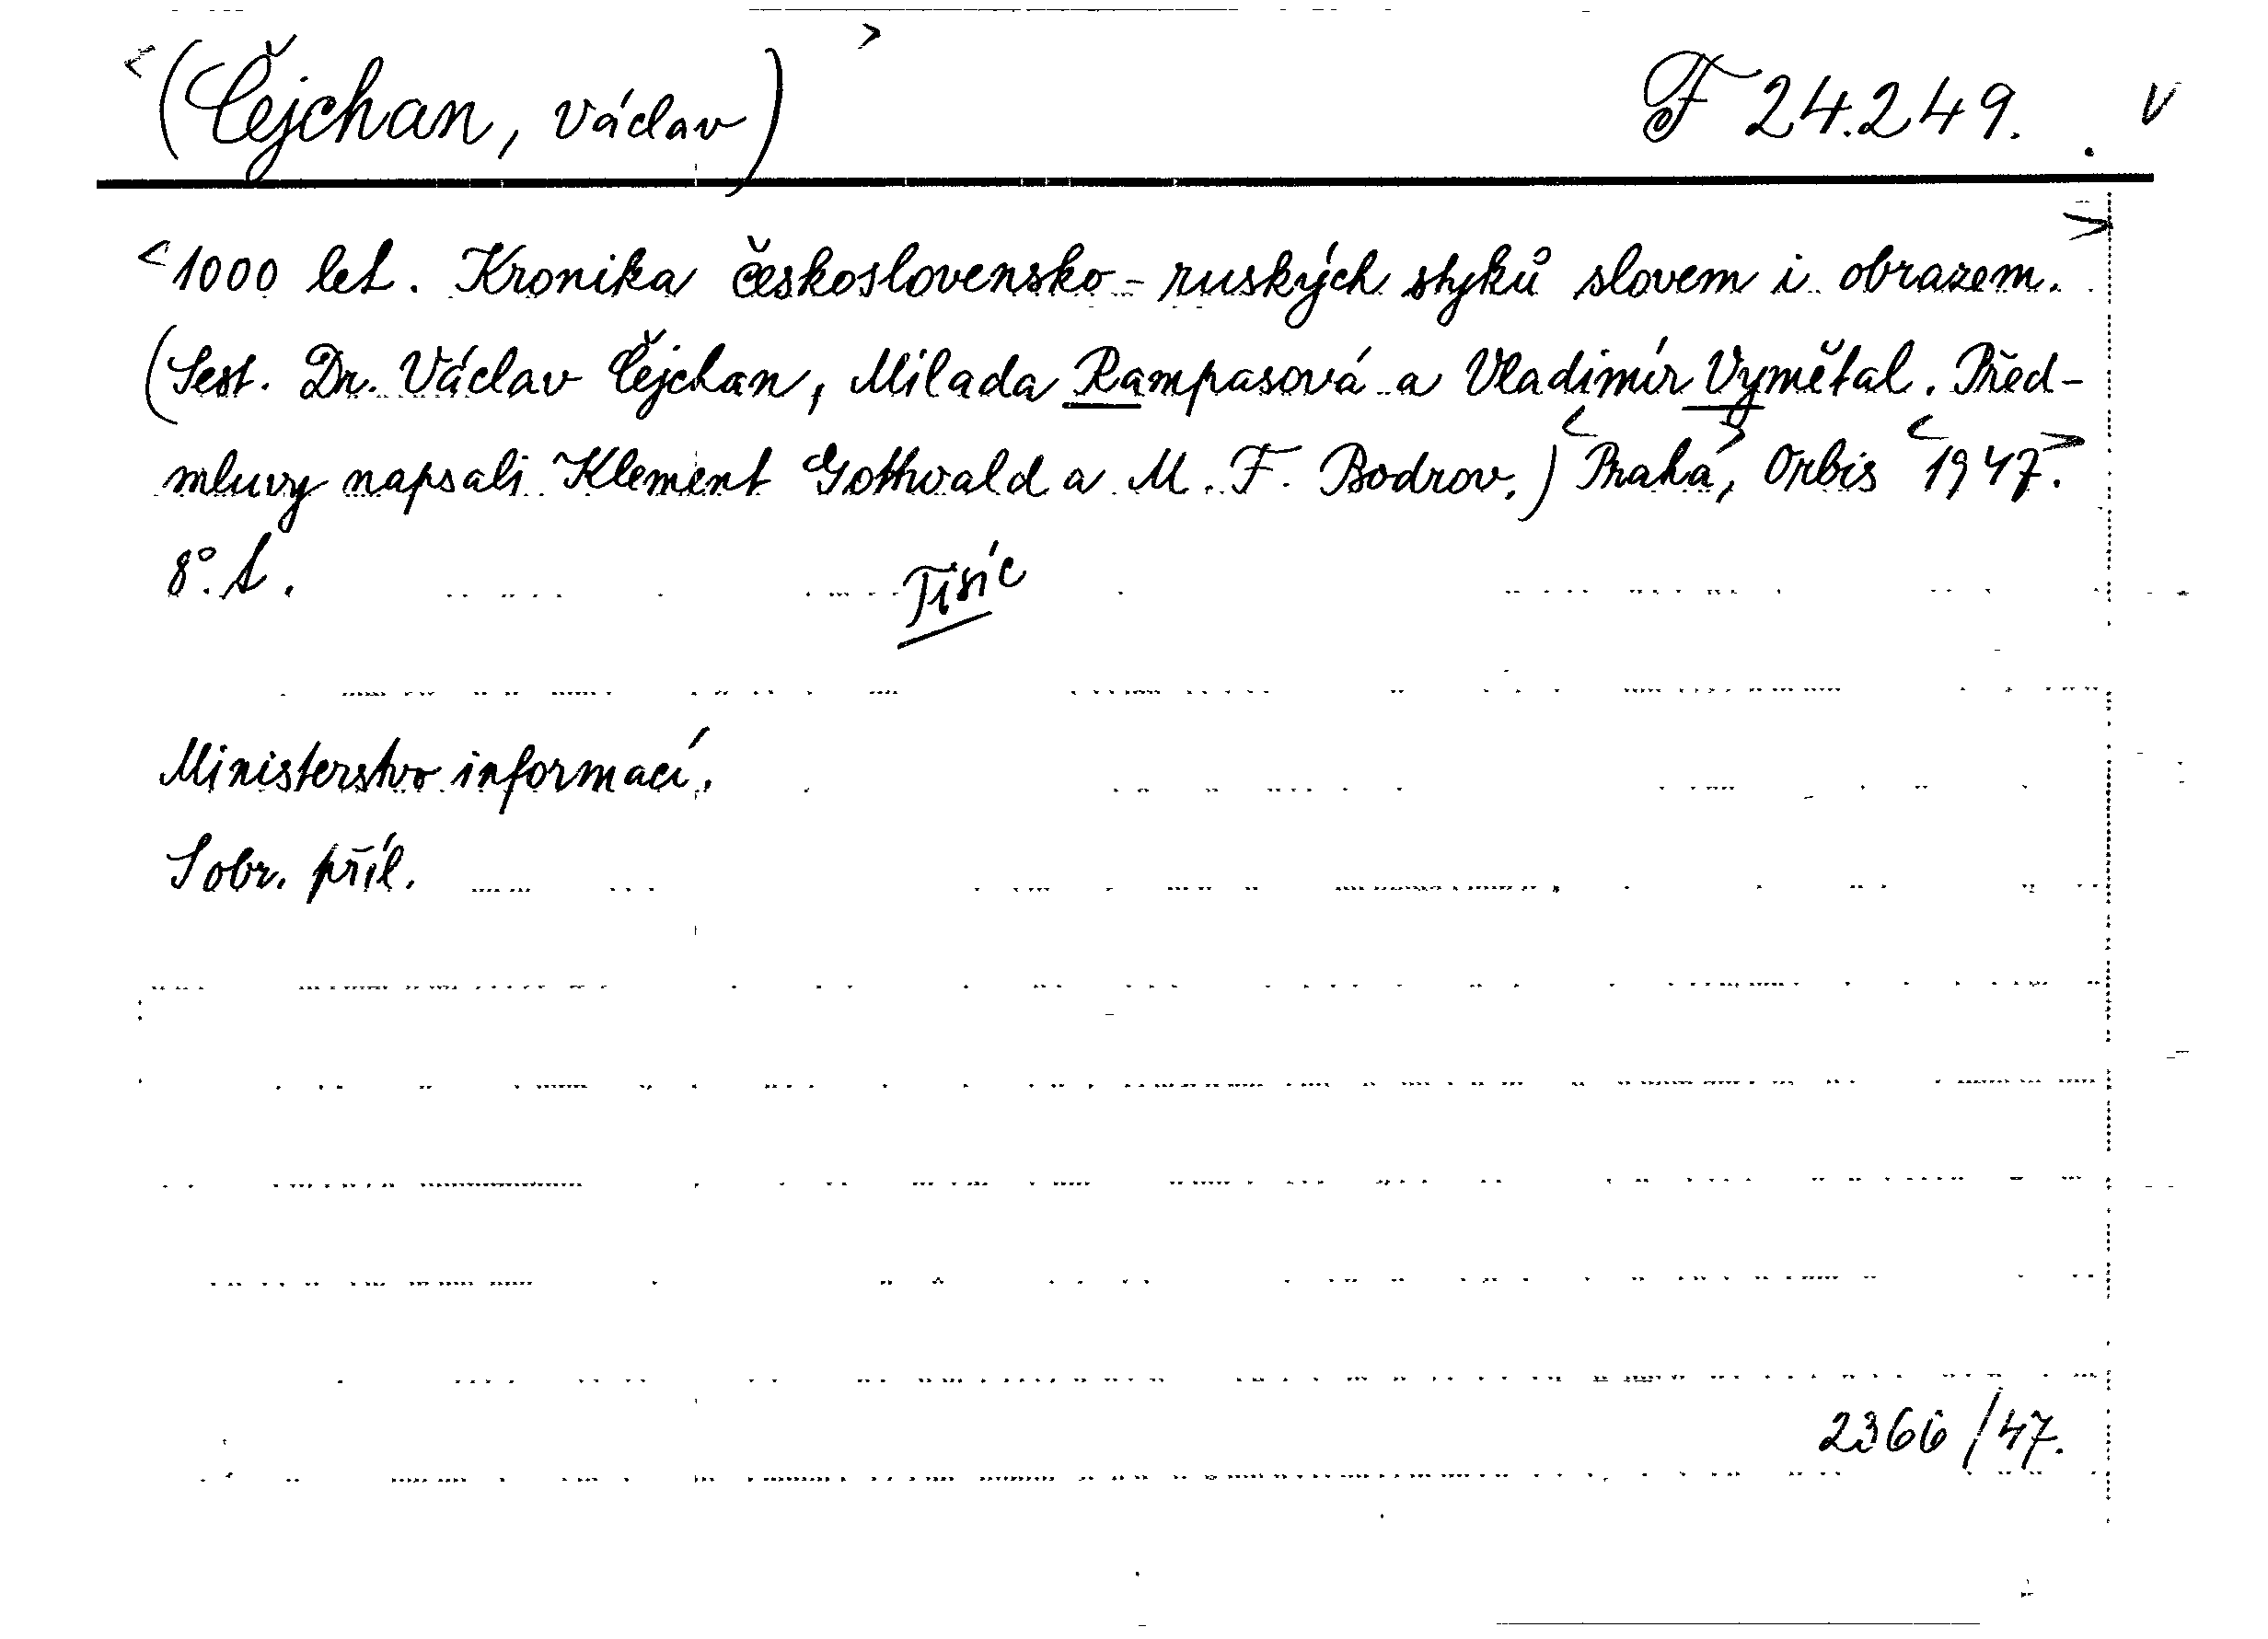 <(Čejchan, Václav)> F 24.249. v
<1000 let. Kronika československo-ruských styků slovem i obrazem.>
(Sest. Dr. Václav Čejchan, Milada Rampasová a Vladimír Vymětal. Před-
mluvy napsali Klement Gottwald a M. F. Bodrov.) <Praha>, Orbis <1947>.
8°. s.
Tisíc
Ministerstvo informací.
S obr. příl.
2366/47.